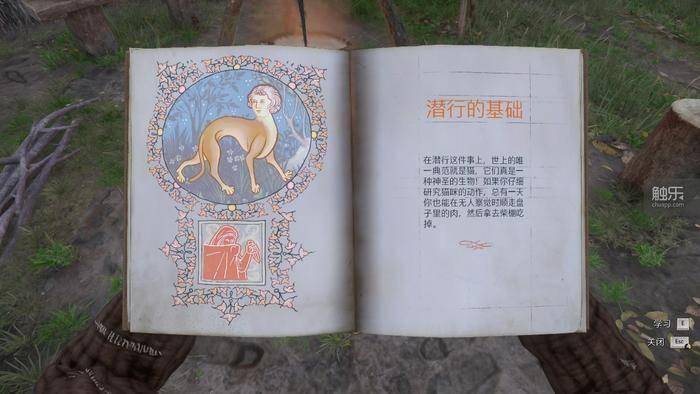 潜行的基础
在潜行这件事上，世上的唯
一典范就是猫，它们真是一
种神圣的生物！如果你仔细
研究猫咪的动作，总有一天
你也能在无人察觉时顺走盘
子里的肉，然后拿去柴棚吃
掉。
触乐
chuapp.com
学习 E
关闭 Esc